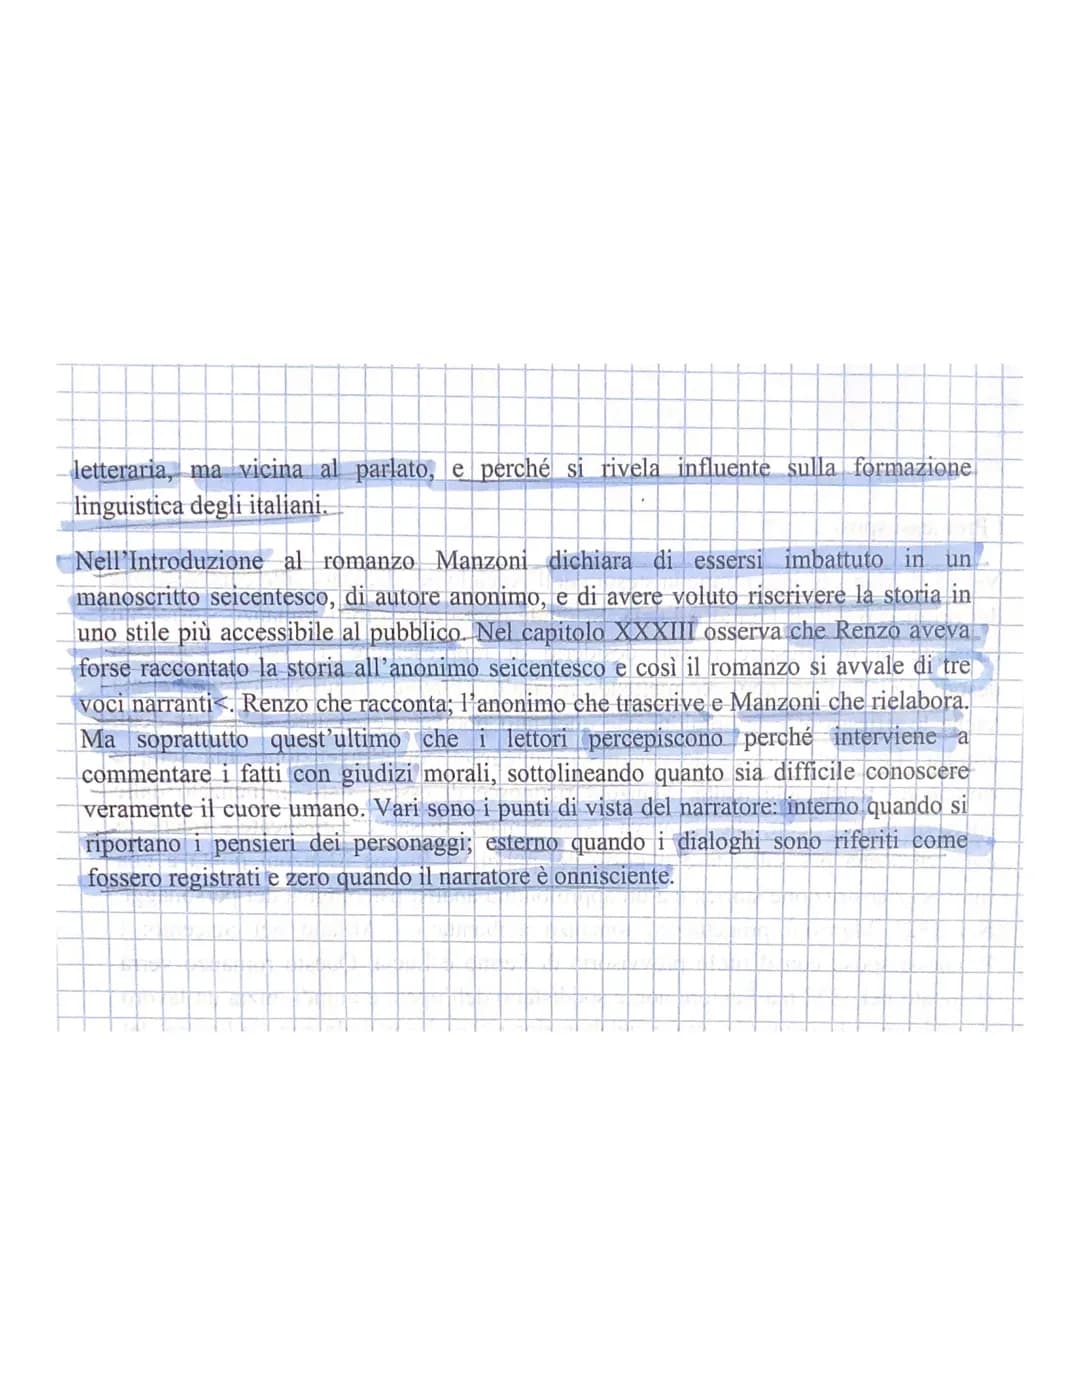 letteraria, ma vicina al parlato, e perché si rivela influente sulla formazione
linguistica degli italiani.
Nell'Introduzione al romanzo Manzoni dichiara di essersi imbattuto in un
manoscritto seicentesco, di autore anonimo, e di avere voluto riscrivere la storia in
uno stile più accessibile al pubblico. Nel capitolo XXXIII osserva che Renzo aveva
forse raccontato la storia all'anonimo seicentesco e così il romanzo si avvale di tre
voci narranti<. Renzo che racconta; l'anonimo che trascrive e Manzoni che rielabora.
Ma soprattutto quest'ultimo che i lettori percepiscono perché interviene a
commentare i fatti con giudizi morali, sottolineando quanto sia difficile conoscere
veramente il cuore umano. Vari sono i punti di vista del narratore: interno quando si
riportano i pensieri dei personaggi; esterno quando i dialoghi sono riferiti come
fossero registrati e zero quando il narratore è onnisciente.